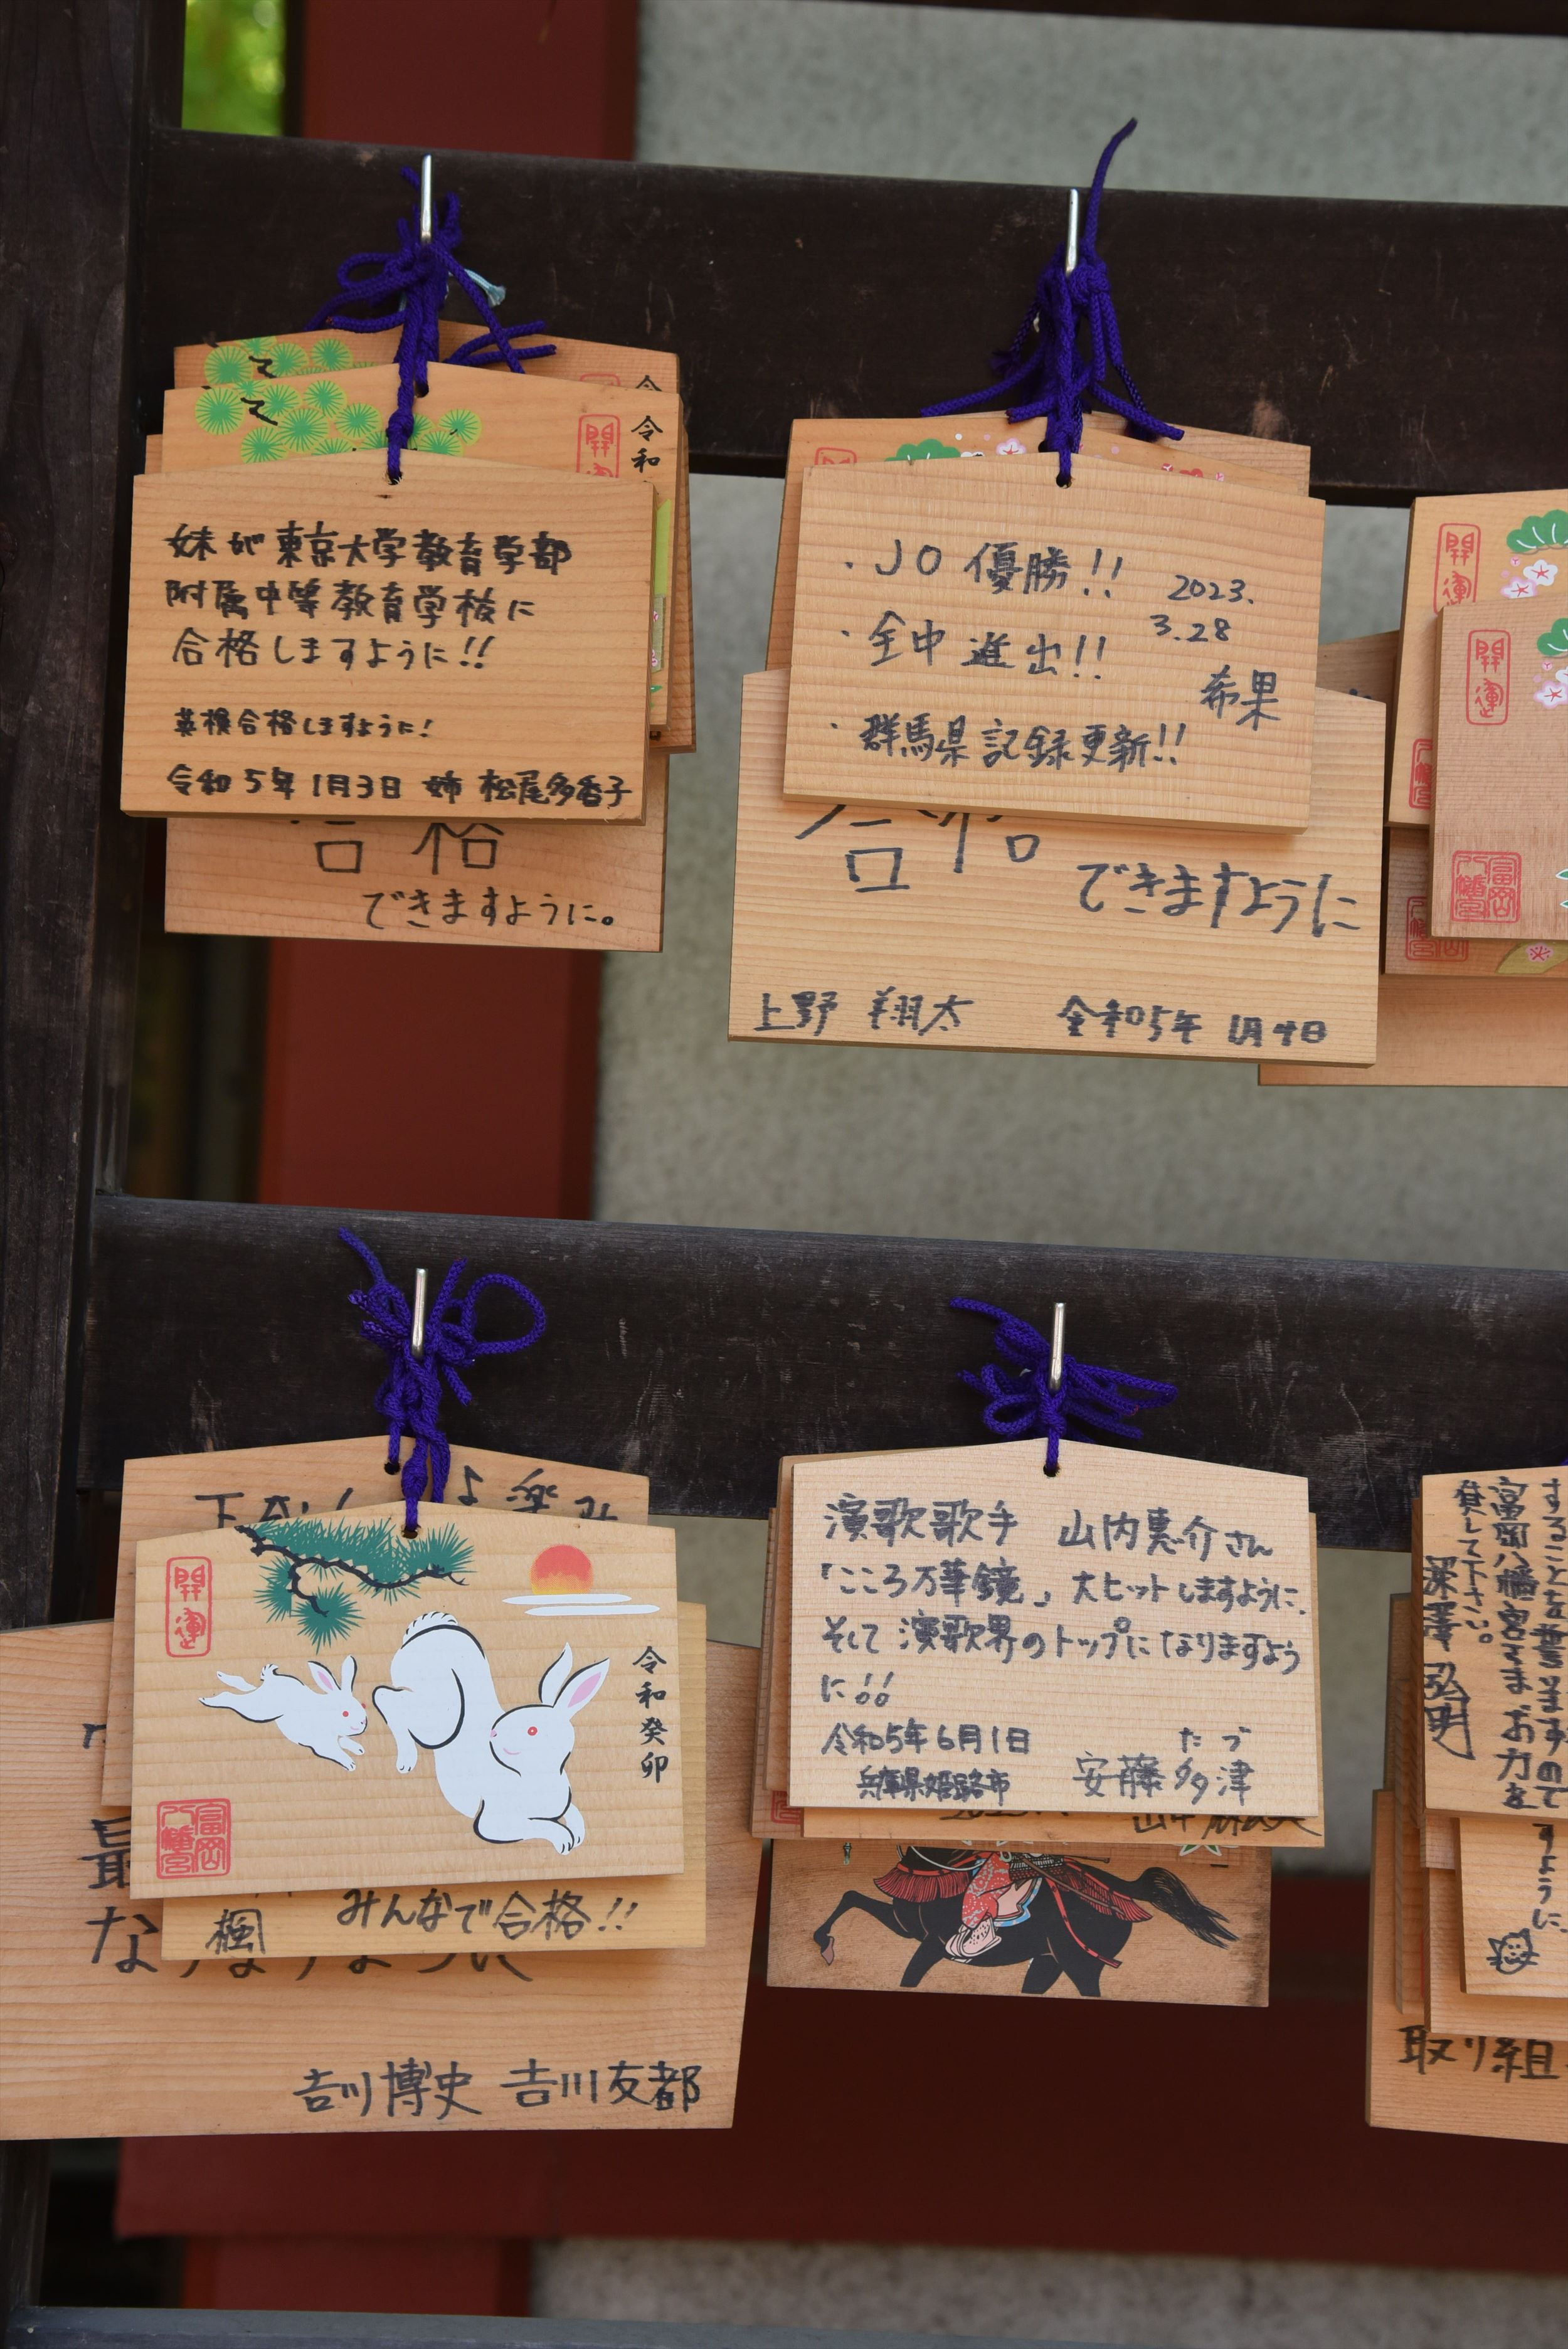 令
令和
開
妹が東京大学教育学部
附属中等教育学校に
合格しますように!!
英検合格しますように!
令和5年1月3日 姉 松尾多香子
合格
できますように。
・JO 優勝!!
2023.
3.28
・全中進出!!
希果
・群馬県記録更新!!
合格
できますように
上野 翔太 令和5年 1月4日
開運
開運
富岡八幡宮
開運
令和癸卯
富岡八幡宮
楓 みんなで合格!!
最
な
吉川博史 吉川友都
演歌歌手 山内惠介さん
「こころ万華鏡」大ヒットしますように。
そして演歌界のトップになりますよう
に!!
令和5年6月1日
たづ
兵庫県姫路市 安藤多津
することを誓いますので
富岡八幡宮さまお力を
貸して下さい。
深澤 弘明
すように
取り組